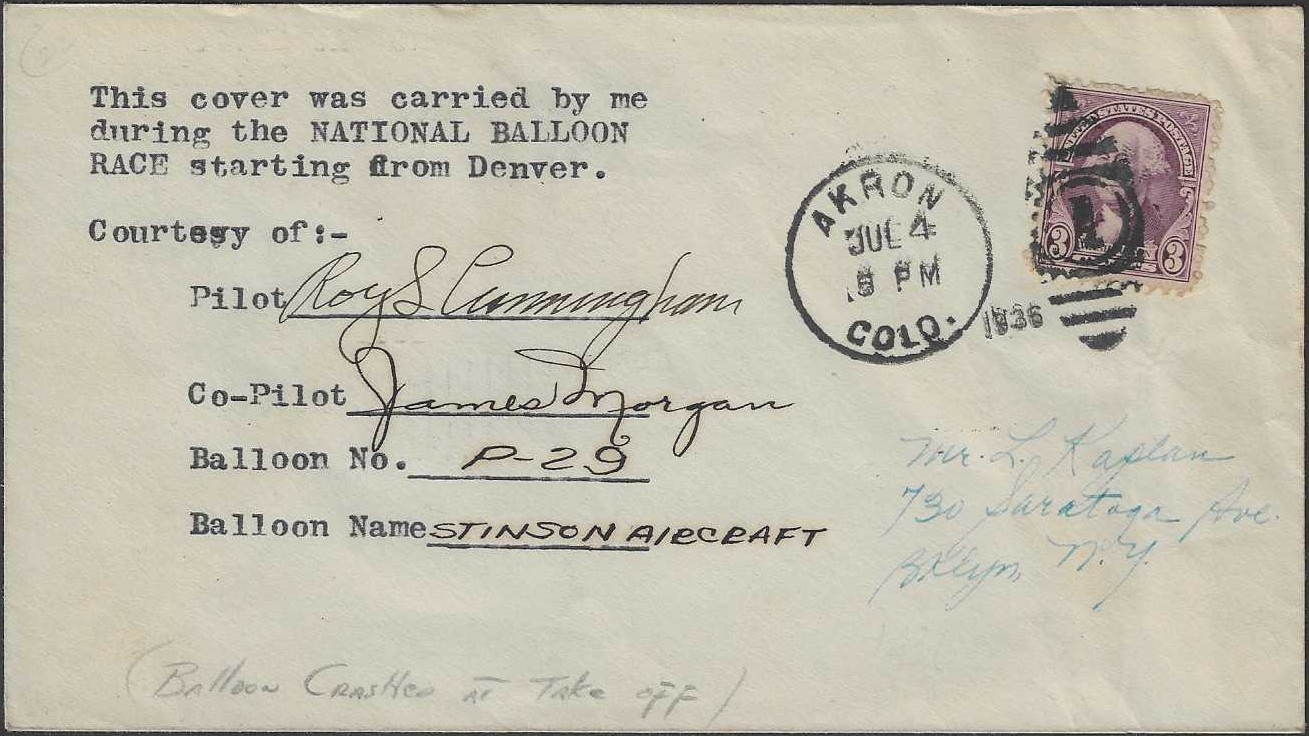 This cover was carried by me
during the NATIONAL BALLOON
RACE starting from Denver.
Courtesy of:-
Pilot Roy S Cunningham
Co-Pilot James Morgan
Balloon No. P-29
Balloon Name STINSON AIRCRAFT
(Balloon Crashed at Take off)
AKRON
JUL 4
PM
COLO.
1936
UNITED STATES POSTAGE
3 3
Mr. L. Kaplan
730 Saratoga Ave.
Bklyn, N.Y.